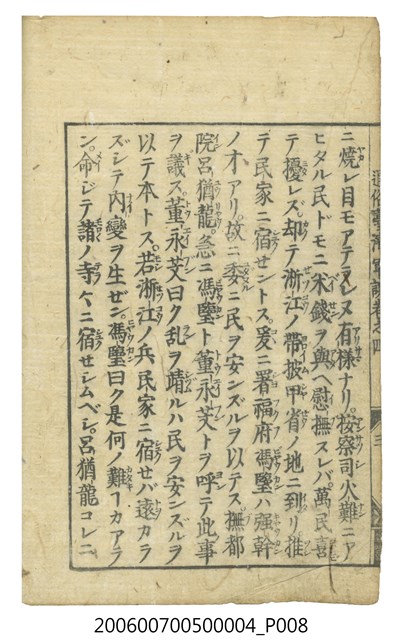 通俗臺灣軍談卷之四
三
ニ燒レ目モアテラレヌ有樣ナリ。按察司火難ニア
ヒタル民ドモニ米錢ヲ與ヘ慰撫スレバ萬民喜
テ擾レズ却テ浙江ノ帶披甲省ノ地ニ到リ推
テ民家ニ宿セントス。爰ニ署福府馮壂ハ强幹
ノ才アリ。故ニ委ニ民ヲ安ンズルヲ以テス。撫都
院呂猶龍。急ニ馮壂ト董永芠トヲ呼テ此事
ヲ議ス。董永芠曰ク乱ヲ靖ルハ民ヲ安ンズルヲ
以テ本トス。若浙江ノ兵民家ニ宿セバ遠カラ
ズシテ内變ヲ生ゼン。馮壂曰ク是何ノ難ヿカアラ
ン。命ジテ諸ノ寺々ニ宿セシムベシ。呂猶龍コレニ
200600700500004_P008